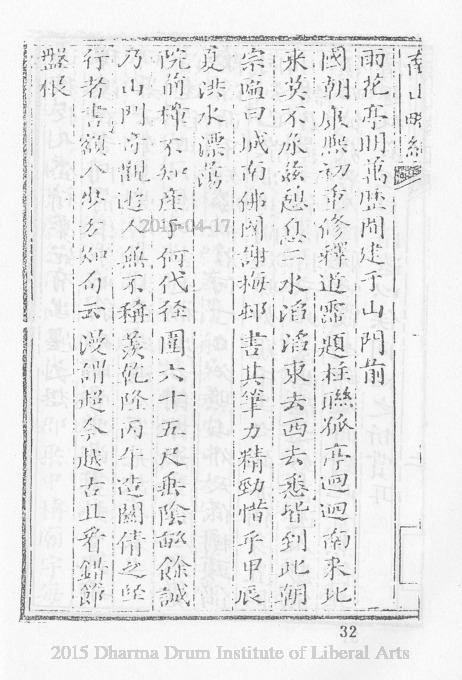 南山略紀
雨花亭明萬歷間建于山門前
國朝康熙初重修釋道霈題柱聯孤亭迥迥南來北
來莫不承茲憩息二水滔滔東去西去悉皆到此朝
宗隘曰城南佛國謝梅邨書其筆力精勁惜乎甲辰
夏洪水漂蕩
院前樟不知產乎何代徑圍六十五尺垂陰畝餘誠
乃山門奇觀遊人無不稱羨乾隆丙午造關倩之
行者書額不少公知句云漫謂超今越古且看錯節
盤根
2015-04-17
32
2015 Dharma Drum Institute of Liberal Arts